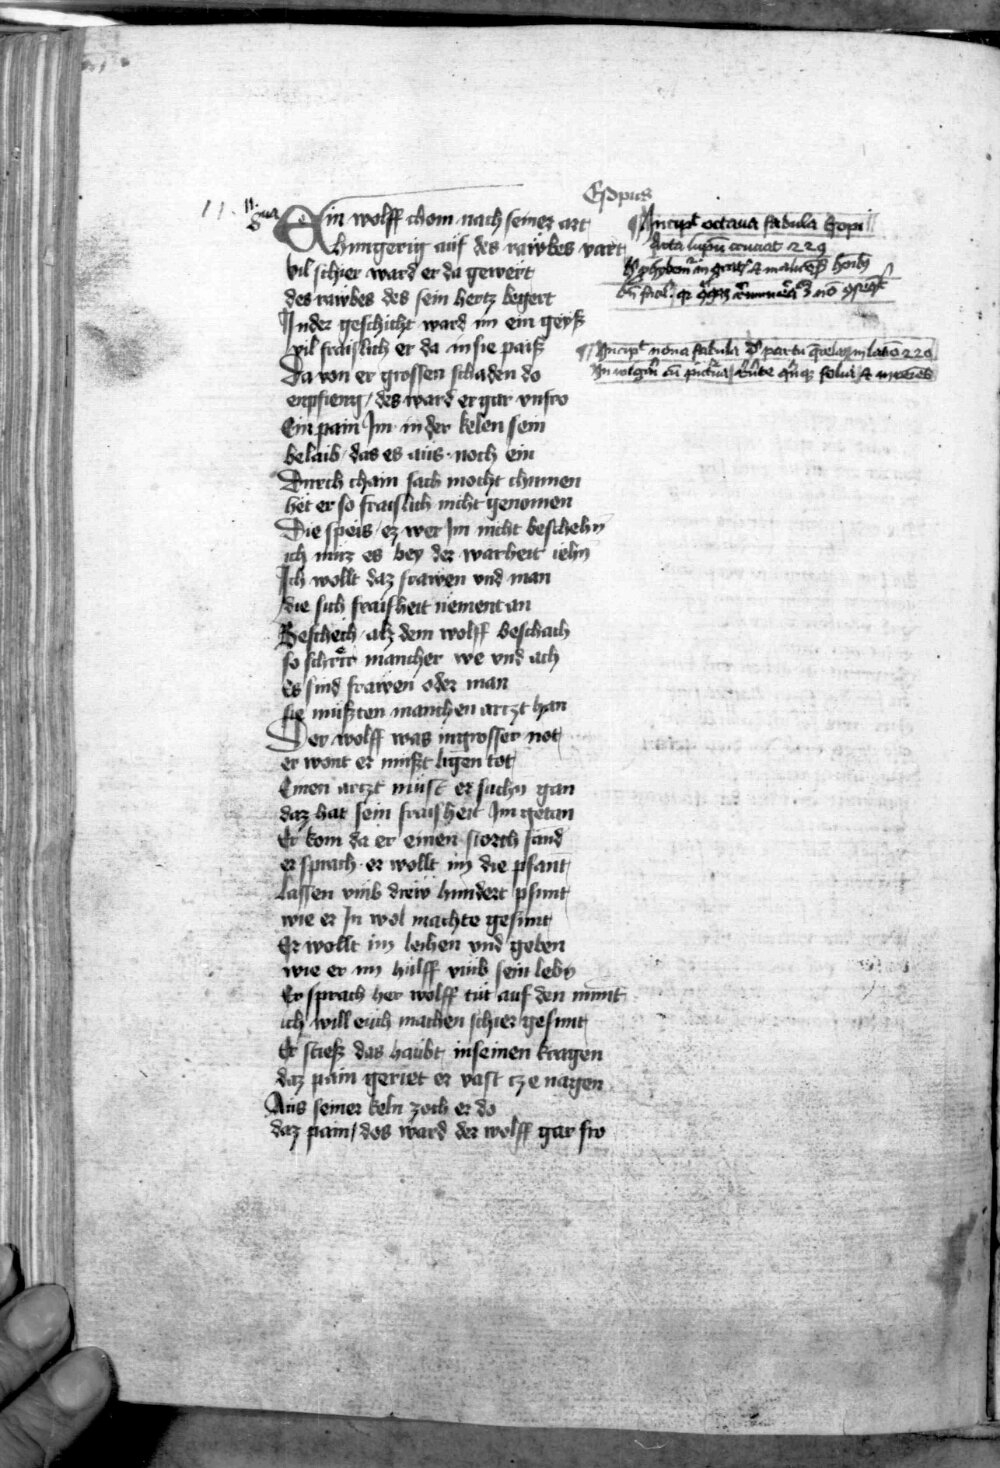 Esopus
11. 8ua
Ein wolff chom nach seiner art
hungerig auf des rawbes vart
vil schier ward er da gewert
des rawbes des sein hertz begert
In der geschicht ward im ein geyß
vil fraislich er da in sie paiß
Da von er grossen schaden do
enpfieng / des ward er gar vnfro
Ein pain Im in der kelen sein
belaib / das es aus noch ein
Durch chain sach mocht chumen
het er so fraislich nicht genomen
Die speis / ez wer Im nicht beschehn
ich muz es bey der warheit iehn
Ich wollt daz frawen vnd man
die sich fraisheit nement an
Beschech / alz dem wolff beschach
so schrir mancher we vnd ach
es sind frawen oder man
sie mußten manchen artzt han
Der wolff was in grosser not
er wont er mußt ligen tot
Einen artzt must er suchn gan
daz hat sein fraisheit Im getan
Er kom da er einen storch fand
er sprach er wollt im die pfant
lassen vmb drew hundert pfunt
wie er In wol machte gesunt
Er wollt im leihen vnd geben
wie er im hulff vmb sein lebn
Er sprach her wolff tut auf den munt
ich will euch machen schier gesunt
Er stieß das haubt in seinen kragen
daz pain geriet er vast cze nagen
Aus seiner keln zoch er do
daz pain / des ward der wolff gar fro
Incipit octaua fabula Esopi
Arta lupum cruciat
Incipit nona fabula